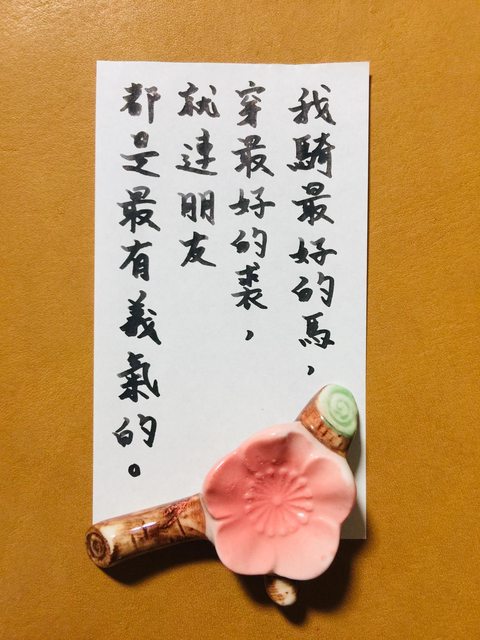 我騎最好的馬，
穿最好的裘，
就連朋友
都是最有義氣的。